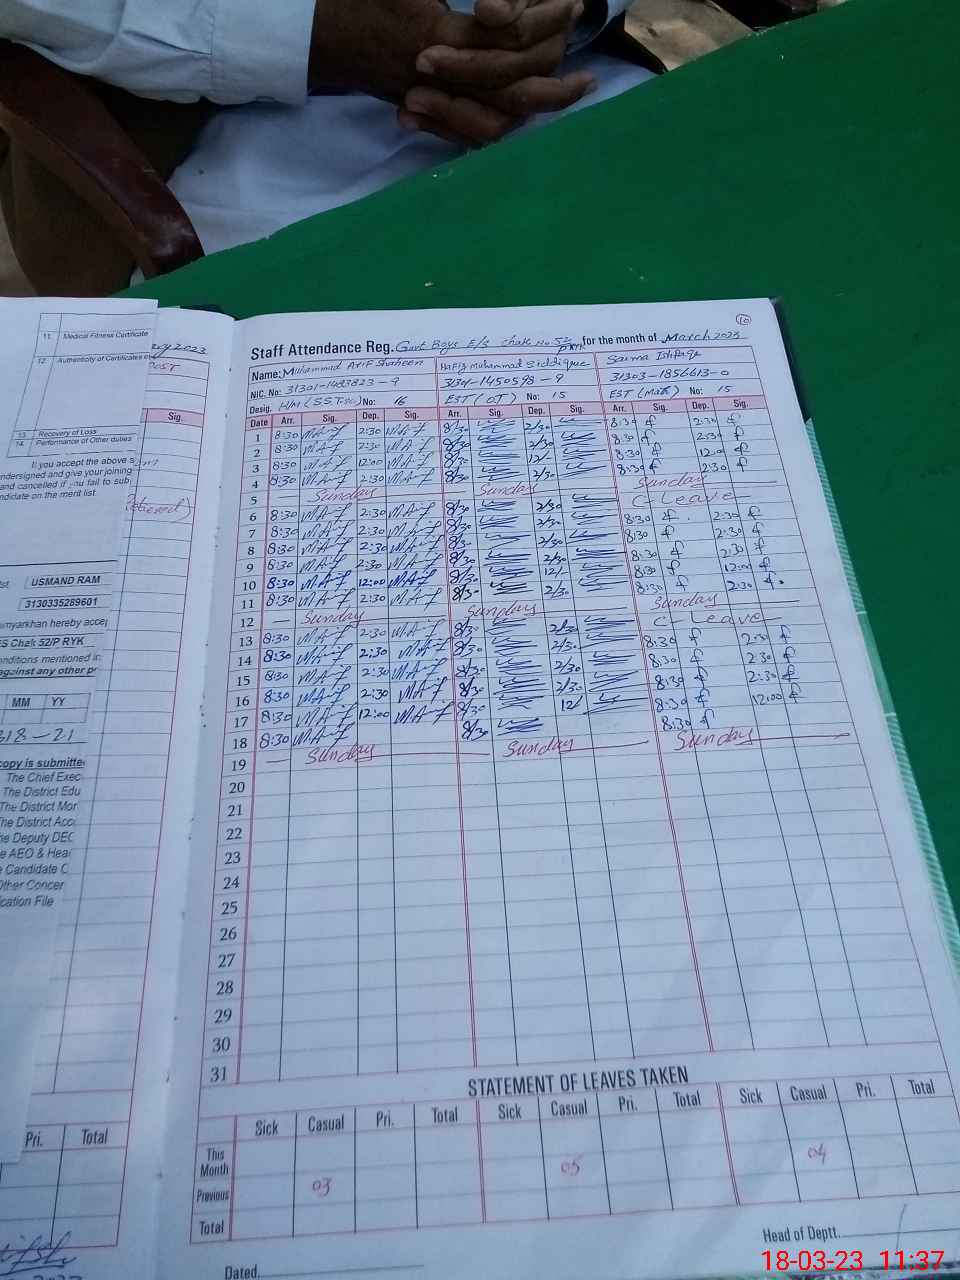 10
Staff Attendance Reg. Govt Boys E/S Chak No 52 for the month of March 2023
Name: Muhammad Arif Shaheen Hafiz Muhammad Siddique Saima Ishfaq
NIC. No: 31301-1483823-9 31303-1856613-0
Desig. H/M (S.S.T) No: 16 EST (OT) No: 15 EST (Math) No: 15
Date Arr. Sig. Dep. Sig. Arr. Sig. Dep. Sig. Arr. Sig. Dep. Sig.
1 8:30 MA-f 2:30 MA-f 8/30 2/30 8:30 f 2:30 f
2 8:30 MA-f 2:30 MA-f 8/30 2/30 8:30 f 2:30 f
3 8:30 MA-f 12:00 MA-f 8/30 12/ 8:30 f 12:00 f
4 8:30 MA-f 2:30 MA-f 8/30 2/30 8:30 f 2:30 f
5 Sunday Sunday Sunday
6 8:30 MA-f 2:30 MA-f 8/30 2/30 C-Leave
7 8:30 MA-f 2:30 MA-f 8/30 2/30 8:30 f 2:30 f
8 8:30 MA-f 2:30 MA-f 8/30 2/30 8:30 f 2:30 f
9 8:30 MA-f 2:30 MA-f 8/30 2/30 8:30 f 2:30 f
10 8:30 MA-f 12:00 MA-f 8/30 12/ 8:30 f 12:00 f
11 8:30 MA-f 2:30 MA-f 8/30 2/30 8:30 f 2:30 f
12 Sunday Sunday Sunday
13 8:30 MA-f 2:30 MA-f 8/30 2/30 C-Leave
14 8:30 MA-f 2:30 MA-f 8/30 2/30 8:30 f 2:30 f
15 8:30 MA-f 2:30 MA-f 8/30 2/30 8:30 f 2:30 f
16 8:30 MA-f 2:30 MA-f 8/30 2/30 8:30 f 2:30 f
17 8:30 MA-f 12:00 MA-f 8/30 12/ 8:30 f 12:00 f
18 8:30 MA-f 8/30 8:30 f
19 Sunday Sunday Sunday
20
21
22
23
24
25
26
27
28
29
30
31
STATEMENT OF LEAVES TAKEN
Sick Casual Pri. Total Sick Casual Pri. Total Sick Casual Pri. Total
This Month
Previous 03 05 04
Total
Head of Deptt.
Dated.
11. Medical Fitness Certificate
12. Authenticity of Certificates
13 Recovery of Loss
14 Performance of Other duties
2023
Sig.
If you accept the above
undersigned and give your joining
and cancelled if you fail to sub
candidate on the merit list.
USMAND RAM
3130335289601
hereby accep
Chak 52/P RYK
conditions mentioned in
against any other
MM YY
318-21
copy is submitte
The Chief Exec
The District Edu
The District Mon
The District Acc
The Deputy DEC
AEO & Hea
Candidate C
Other Concer
ication File
Pri. Total
18-03-23 11:37